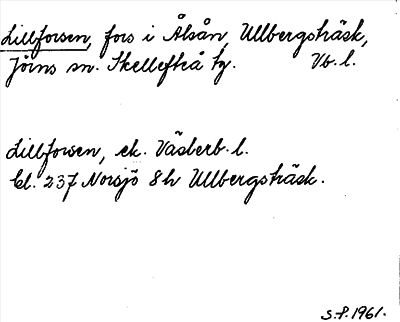 Lillforsen, fors i Ålsån, Ullbergsträsk,
Jörns sn. Skellefteå tg. Vb. l.
Lillforsen, ek. Västerb. l.
bl. 237 Norsjö 8h Ullbergsträsk.
S.P. 1961.